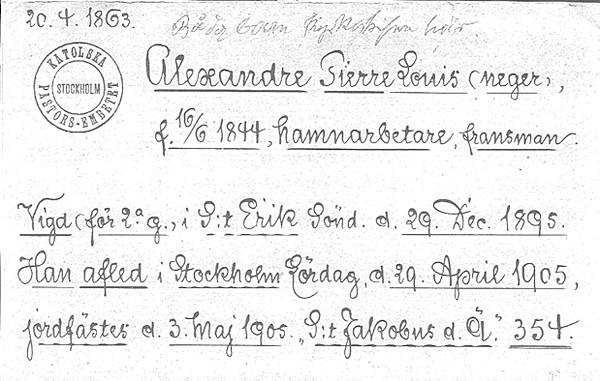 20. 4. 1863.
KATOLSKA
STOCKHOLM
PASTORS-EMBETET
Alexandre Pierre Louis (neger),
f. 16/6 1844, hamnarbetare, fransman.
Vigd (för 2ª g., i S:t Erik Sönd. d. 29. Dec. 1895.
Han afled i Stockholm Lördag, d. 29. April 1905,
jordfästes d. 3. Maj 1905. „S:t Jakobus d. Ä." 354.